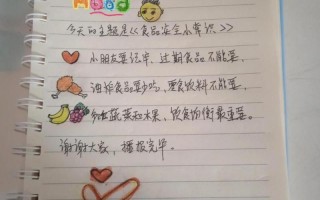 今天的主题是《食品安全小常识》
小朋友要记牢,过期食品不能要。
油炸食品要少吃,零食饮料不能要。
多吃蔬菜和水果,饮食均衡最重要。
谢谢大家,播报完毕。